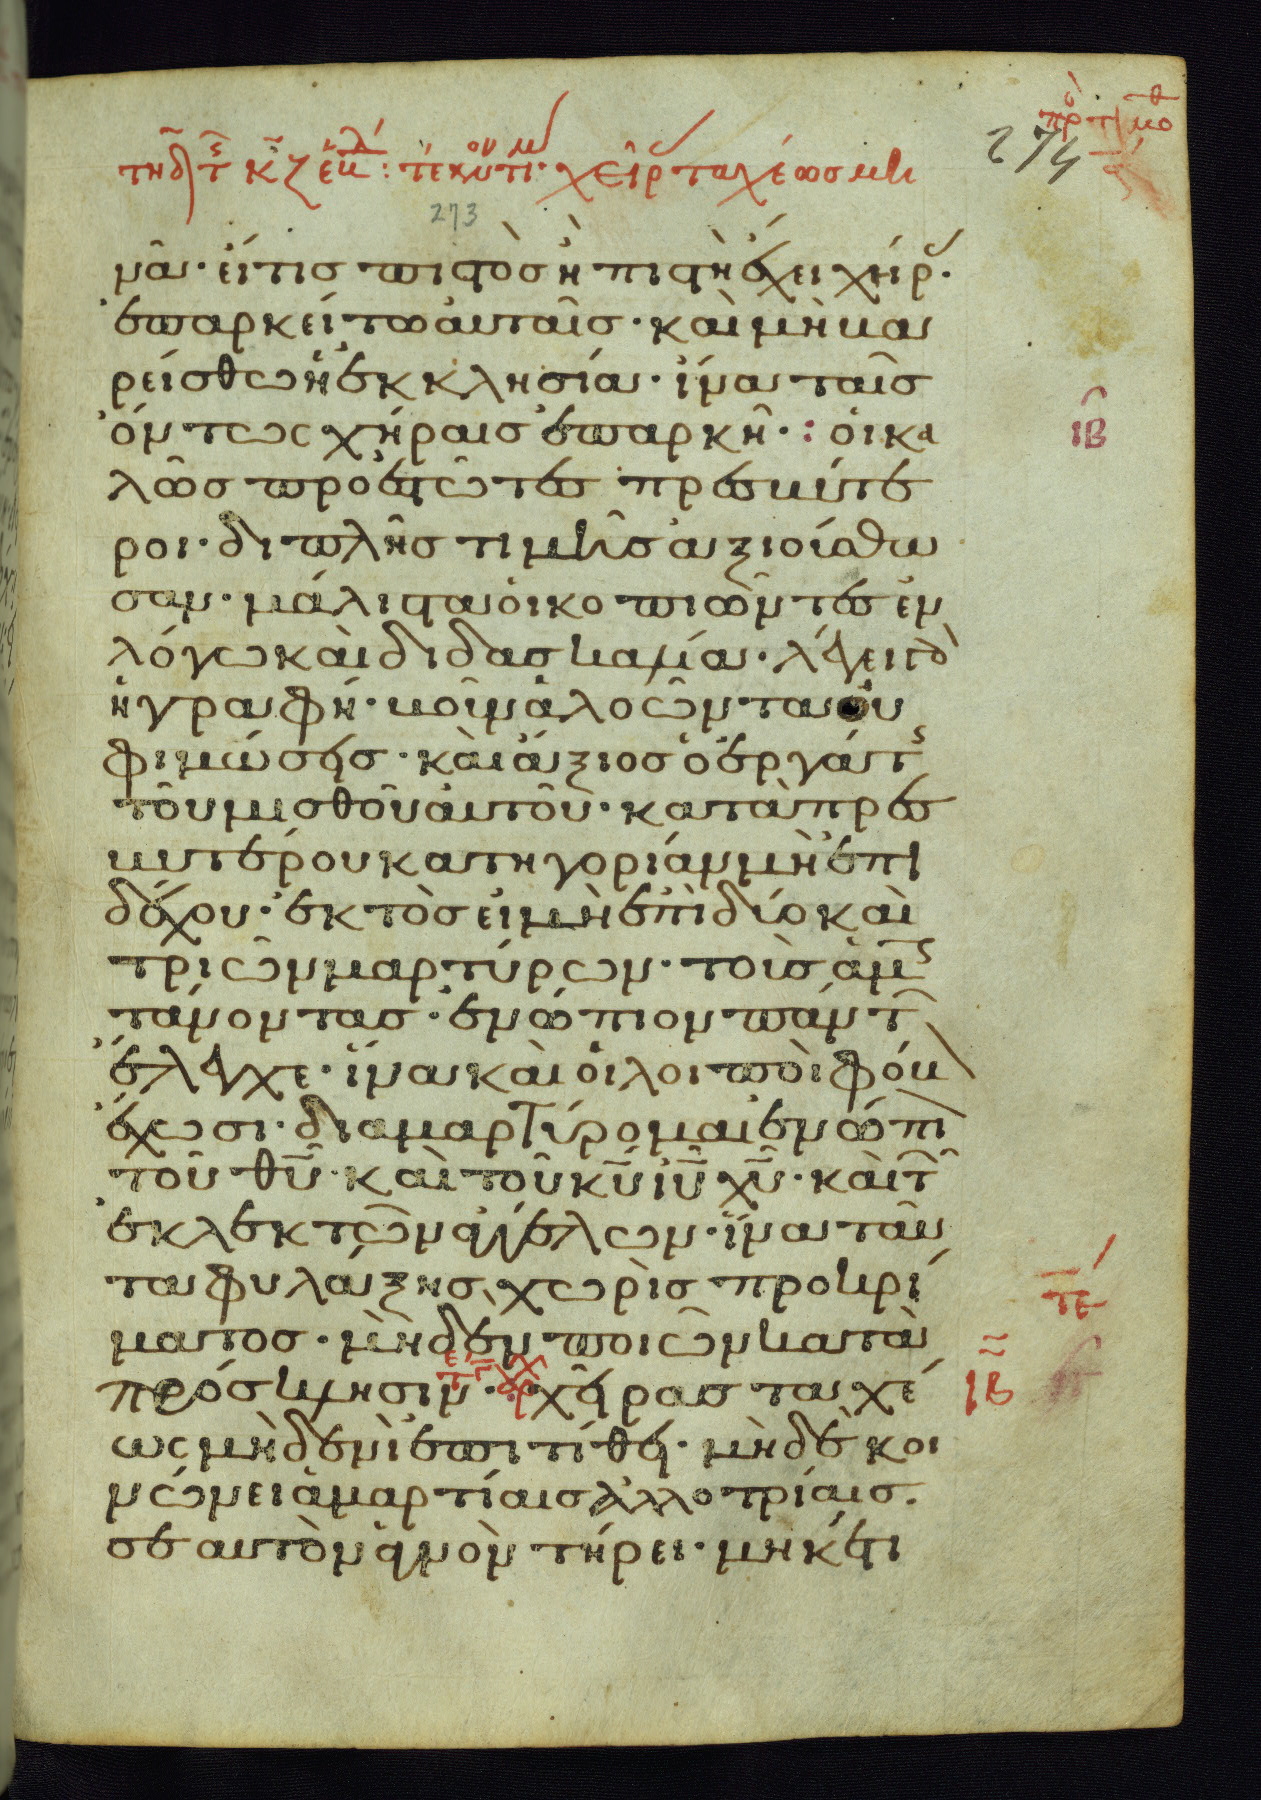 πρ τι μο θ
274
τη δ τ κζ εβ : τεκν τι · χειρ ταχεως μη
273
νᾶ · εἴ τις πιστὸς ἢ πιστὴ ἔχει χήρ ·
ἐπαρκείτω αὐταῖς · καὶ μὴ βα
ρείσθω ἡ ἐκκλησία · ἵνα ταῖς
ὄντως χήραις ἐπαρκῆ · : οἱ κα
λῶς προεστῶτες πρεσβύτε
ροι · διπλῆς τιμῆς ἀξιούσθω
σαν · μάλιστα οἱ κοπιῶντες ἐν
λόγω καὶ διδασκαλία · λέγει γὰ
ἡ γραφή · βοῦν ἀλοῶντα οὐ
φιμώσεις · καὶ ἄξιος ὁ ἐργάτ
τοῦ μισθοῦ αὐτοῦ · κατὰ πρεσ
βυτέρου κατηγορίαν μὴ ἐπι
δέχου · ἐκτὸς εἰ μὴ ἐπὶ δύο καὶ
τριῶν μαρτύρων · τοὺς ἁμ
τάνοντας · ἐνώπιον πάντ
ἔλεγχε · ἵνα καὶ οἱ λοιποὶ φόβ
ἔχωσι · διαμαρτύρομαι ἐνώπι
τοῦ θῦ · καὶ τοῦ κῦ ἰῦ χῦ · καὶ τ
ἐκλεκτῶν ἀγγέλων · ἵνα ταῦ
τα φυλάξης χωρὶς προκρί
ματος · μηδὲν ποιῶν κατὰ
πρόσκλησιν · χεῖρας ταχέ
ως μηδενὶ ἐπιτίθει · μηδὲ κοι
νώνει ἁμαρτίαις ἀλλοτρίαις ·
σεαυτὸν ἁγνὸν τήρει · μηκέτι
ιβ
τε
ιβ